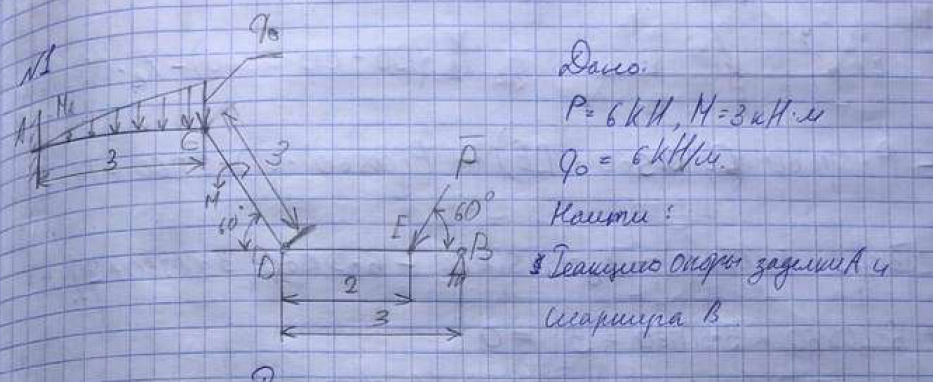 N1
q₀
A
M_A
C
3
3
M
60°
P̄
60°
D
E
B
2
3
Дано:
P = 6 кН, M = 3 кН·м
q₀ = 6 кН/м.
Найти:
Реакцию опоры заделки A и
шарнира B.